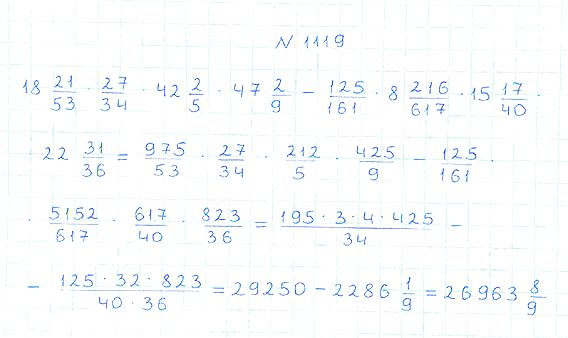 N 1119
18 21/53 · 27/34 · 42 2/5 · 47 2/9 − 125/161 · 8 216/617 · 15 17/40 ·
22 31/36 = 975/53 · 27/34 · 212/5 · 425/9 − 125/161 ·
· 5152/617 · 617/40 · 823/36 = 195 · 3 · 4 · 425/34 −
− 125 · 32 · 823/40 · 36 = 29250 − 2286 1/9 = 26963 8/9